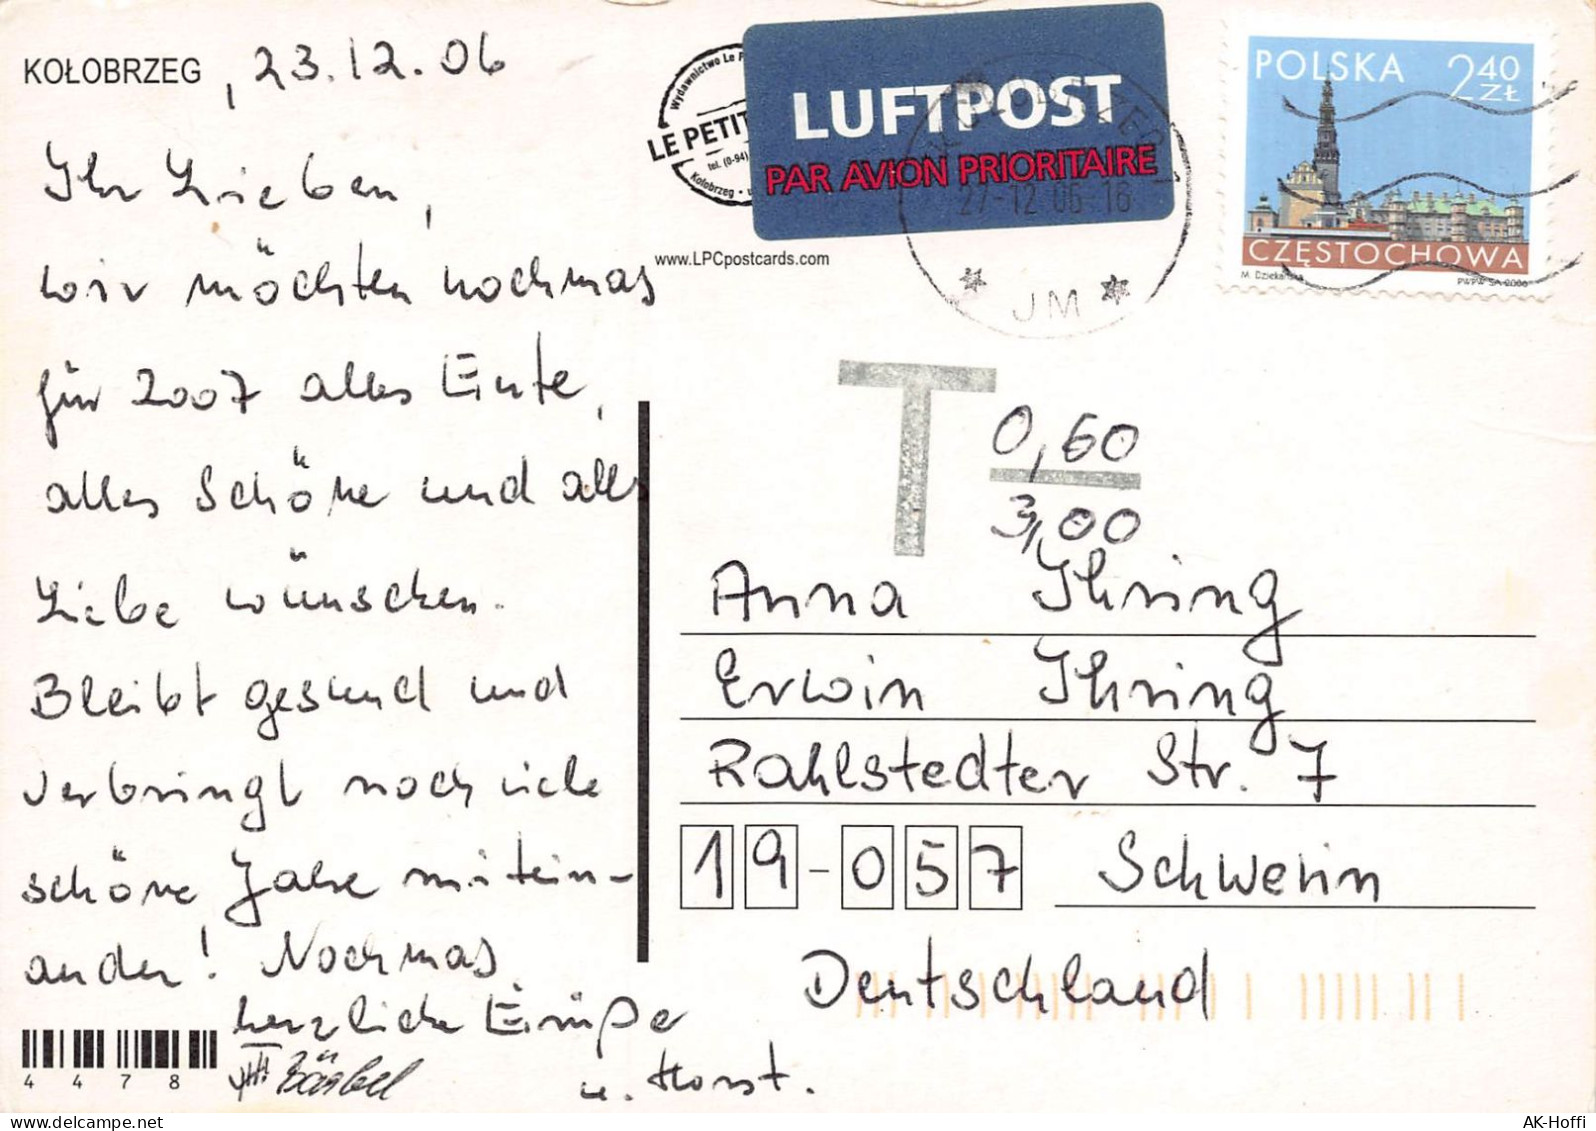 KOŁOBRZEG , 23.12.06
Ihr Lieben,
wir möchten nochmas
für 2007 alles Gute,
alles Schöne und alles
Liebe wünschen.
Bleibt gesund und
verbringt noch viele
schöne Jahre mitein-
ander! Nochmas
herzliche Grüße
Bärbel
u. Horst.
4 4 7 8
Wydawnictwo Le P
LE PETIT
tel. (0-94)
Kołobrzeg • u
www.LPCpostcards.com
LUFTPOST
PAR AVION PRIORITAIRE
27-12 06 16
* JM *
POLSKA 2 40 ZŁ
CZĘSTOCHOWA
M. Dziekańska PWPW SA 2006
T 0,60
3,00
Anna Ihring
Erwin Ihring
Rahlstedter Str. 7
19-057 Schwerin
Deutschland
AK-Hoffi